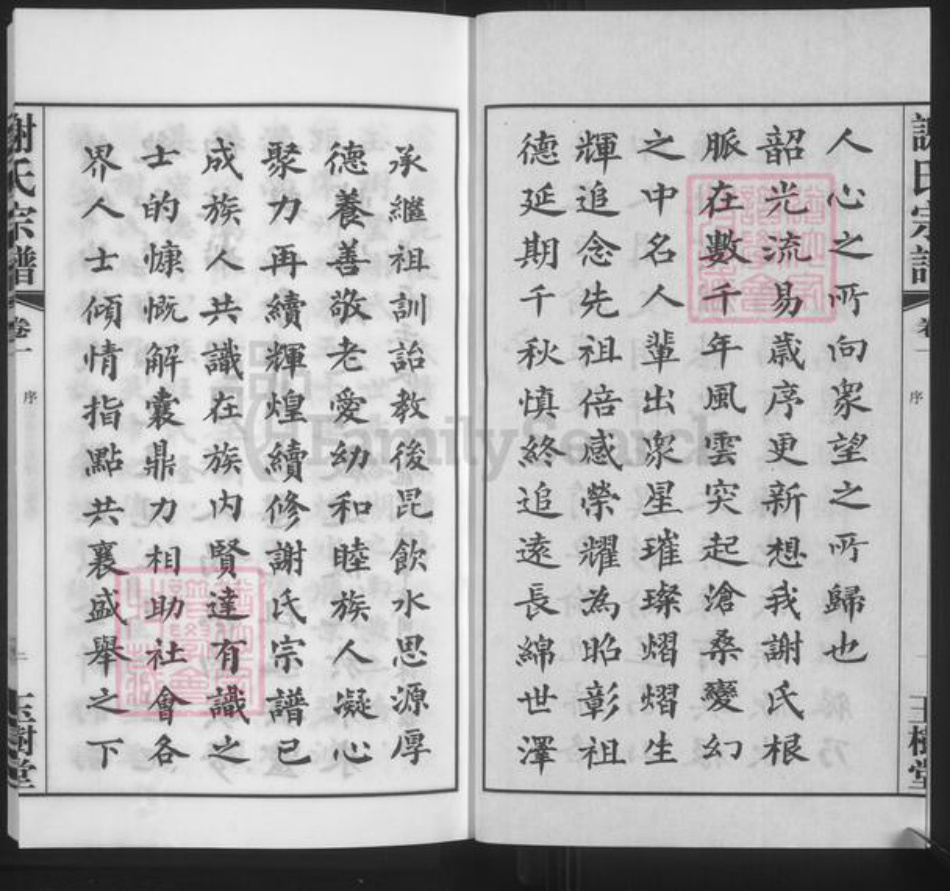 人心之所向衆望之所歸也
韶光流易歲序更新想我謝氏根
脈在數千年風雲突起滄桑變幻
之中名人輩出衆星璀璨熠熠生
輝追念先祖倍感榮耀為昭彰祖
德延期千秋慎終追遠長綿世澤
承繼祖訓詒教後昆飲水思源厚
德養善敬老愛幼和睦族人凝心
聚力再續輝煌續修謝氏宗譜已
成族人共識在族內賢達有識之
士的慷慨解囊鼎力相助社會各
界人士傾情指點共襄盛舉之下
謝氏宗譜
卷一
序
一
玉樹堂
謝氏宗譜
卷一
序
二
玉樹堂
FamilySearch